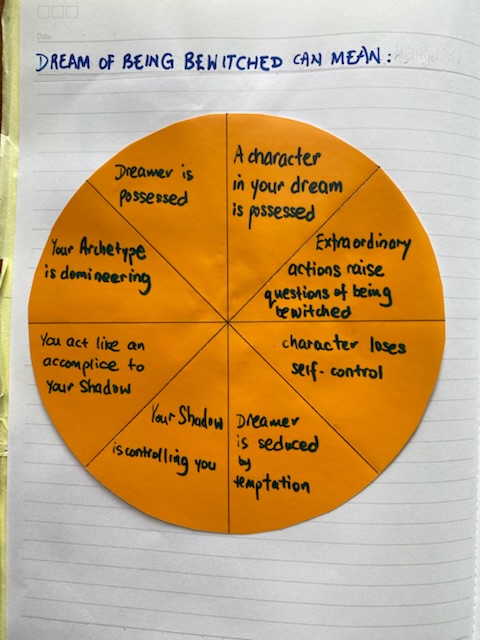 Date
DREAM OF BEING BEWITCHED CAN MEAN:
A character
in your dream
is possessed
Extraordinary
actions raise
questions of being
bewitched
character loses
self-control
Dreamer
is seduced
by
temptation
Your Shadow
is controlling you
You act like an
accomplice to
Your Shadow
Your Archetype
is domineering
Dreamer is
possessed